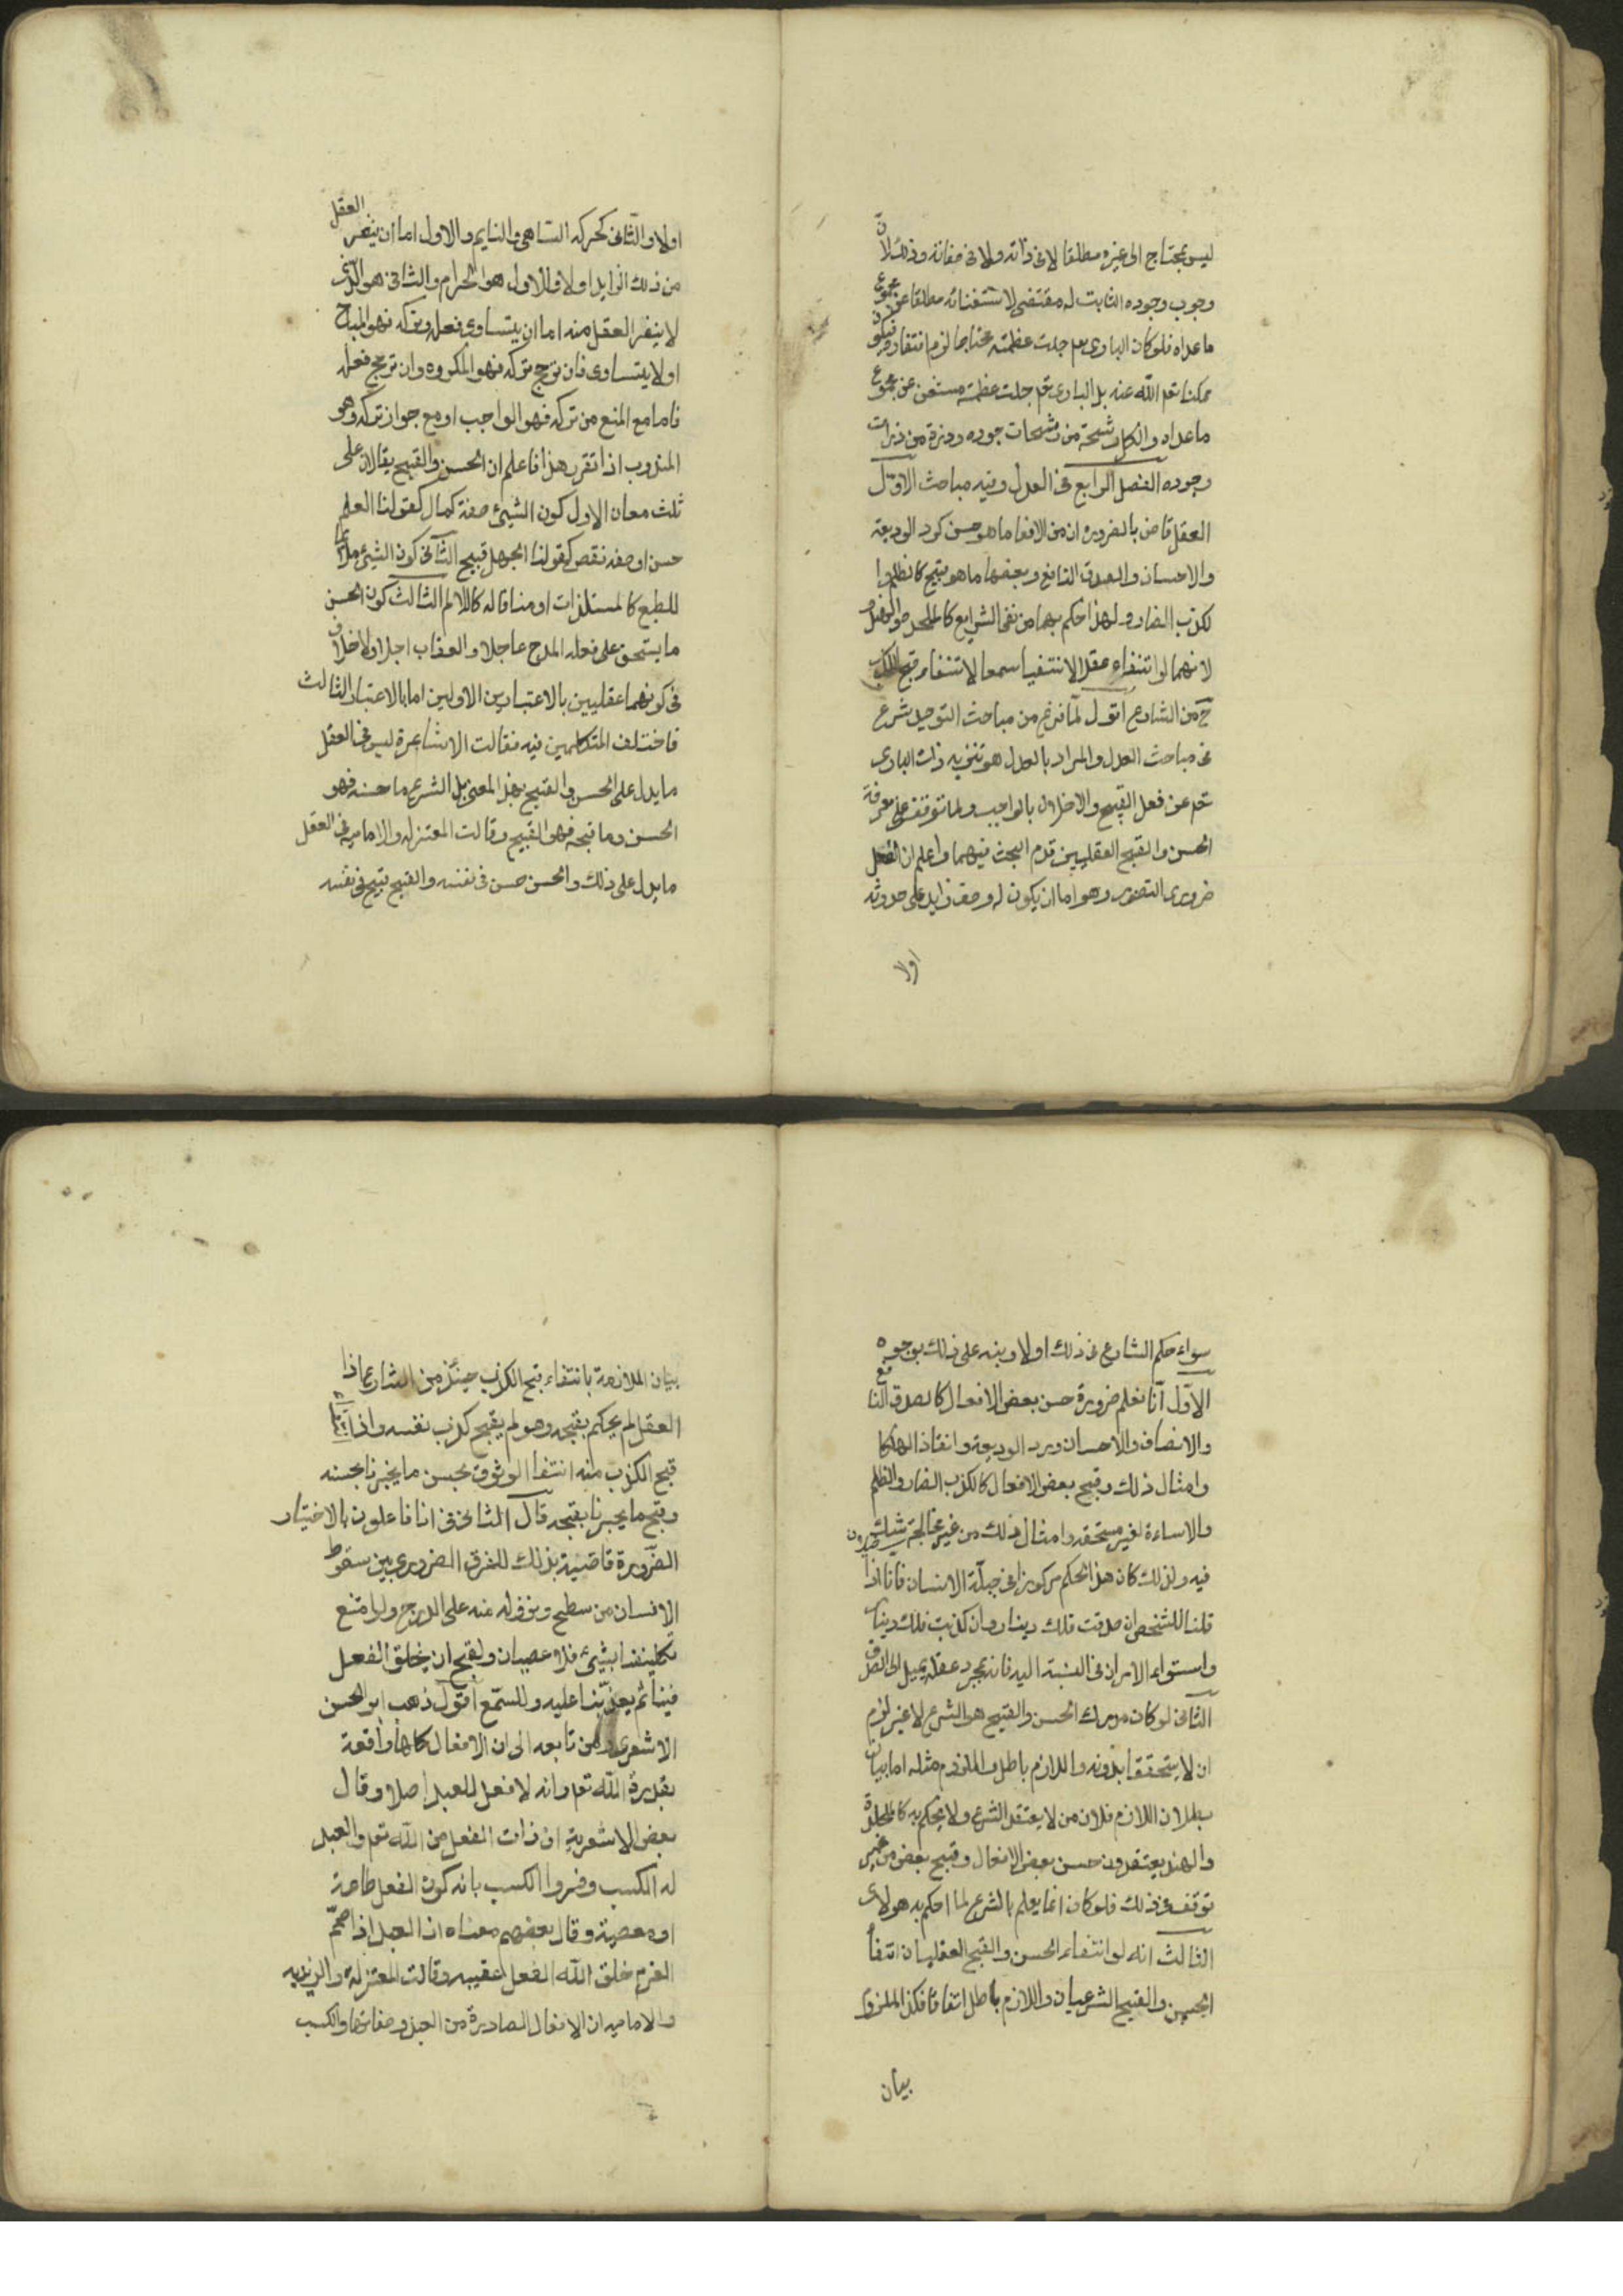 ليس بمحتاج الى غيره مطلقا لا فى ذاته ولا فى صفاته وذلك لانّ
وجوب وجوده الثابت له مقتضى لاستغنائه مطلقا عن مجموع
ما عداه فلو كان البارى تعم جلت عظمته محتاجا لزم افتقاره فيكون
ممكنا تعم الله عنه بل البارى تعم جلت عظمته مستغن عن مجموع
ما عداه والكل رشحة من رشحات جوده وذرة من ذرات
وجوده الفصل الرابع فى العدل وفيه مباحث الاوّل
العقل قاض بالضرورة ان من الافعا ما هو حسن كرد الوديعة
والاحسان والصدق النافع وبعضها ما هو قبيح كالظلم وا
لكذب الضار ولهذا حكم بهما من نفى الشرايع كالملاحدة
لانهما لو انتفاء عقلا لانتفيا سمعا لانتفاء قبح الكذب
ح من الشارع اقول لمّا فرغ من مباحث التوحيد شرع
فى مباحث العدل والمراد بالعدل هو تنزيه ذات البارى
تعم عن فعل القبيح والاخلال بالواجب ولما توقف على معرفة
الحسن والقبح العقليين قدم البحث فيهما واعلم ان الفعل
ضرورى التصور وهو اما ان يكون له وصف زايد على حدوثه
اولا
اولا والثانى كحركه الساهى والنايم والاول اما ان ينفر العقل
من ذلك الزايد اولا والاول هو الحرام والثانى هو الذى
لا ينفر العقل منه اما ان يتساوى فعله وتركه فهو المباح
او لا يتساوى فان ترجح تركه فهو المكروه وان ترجح فعله
فاما مع المنع من تركه فهو الواجب او مع جواز تركه وهو
المندوب اذا تقرر هذا فاعلم ان الحسن والقبيح يقالان على
ثلث معان الاول كون الشيئ صفة كمال كقولنا العلم
حسن او صفه نقص كقولنا الجهل قبيح الثانى كون الشيئ ملائما
للطبع كالمستلذات او منافا له كالالم الثالث كون الحسن
ما يستحق على فعله المدح عاجلا والعذاب اجلا ولا خلاف
فى كونهما عقليين بالاعتبارين الاولين اما بالاعتبار الثالث
فاختلف المتكلمين فيه فقالت الاشاعرة ليس فى العقل
ما يدل على الحسن والقبيح بهذا المعنى بل الشرع ما حسنه فهو
الحسن وما قبحه فهو القبيح وقالت المعتزله والاماميه فى العقل
ما يدل على ذلك والحسن حسن فى نفسه والقبيح قبيح فى نفسه
سواء حكم الشارع فى ذلك اولا ونبه على ذلك بوجوه
الاوّل انّا نعلم ضرورة حسن بعض الافعال كالصدق النافع
والانصاف والاحسان ورد الوديعة وانقاذ الهلكا
وامثال ذلك وقبح بعض الافعال كالكذب الضار والظلم
والاساءة لغير مستحقه وامثال ذلك من غير مخالجة شك
فيه ولذلك كان هذا الحكم مركوزا فى جبلّة الانسان فانا اذا
قلنا للشخص ان صدقت فلك دينار وان كذبت فلك دينار
واستواء الامران فى النسبة اليه فانه بمجرد عقله يميل الى الصدق
الثانى لو كان مدرك الحسن والقبيح هو الشرع لا غير لزم
ان لا يتحققا بدونه واللازم باطل والملزوم مثله اما بيان
بطلان اللازم فلان من لا يعتقد الشرع ولا يحكم به كالملاحدة
والهند يعتقدون حسن بعض الافعال وقبح بعض من غير
توقف فى ذلك فلو كان انما يعلم بالشرع لما احكم به هولاى
الثالث انه لو انتفاء الحسن والقبح العقليان انتفا
الحسن والقبيح الشرعيان واللازم باطل اتفاقا فكذا الملزوم
بيان
بيان الملازمة بانتفاء قبح الكذب حينئذ من الشارع اذا
العقل لم يحكم بقبحه وهو لم يقبح كذب نفسه واذا
قبح الكذب منه انتفا الوثوق بحسن ما يخبرنا بحسنه
وقبح ما يخبرنا بقبحه قال الثانى فى انا فاعلون بالاختيار
الضرورة قاضية بذلك للفرق الضرورى بين سقوط
الانسان من سطح ونزوله منه على الدرج ولامتنع
تكليفنا بشيئ فلا عصيان ولقبح ان يخلق الفعل
فينا ثم يعذبنا عليه وللسّمع اقول ذهب ابو الحسن
الاشعرى ومن تابعه الى ان الافعال كلها واقعة
بقدرة الله تعم وانه لا فعل للعبد اصلا وقال
بعض الاشعرية ان ذات الفعل من الله تعم والعبد
له الكسب وفسروا الكسب بانه كون الفعل طاعة
او معصية وقال بعضهم معناه ان العبد اذا صمّم
العزم خلق الله الفعل عقيبه وقالت المعتزلة والزيديه
والاماميه ان الافعال الصادرة من العبد وصفاتها والكسب